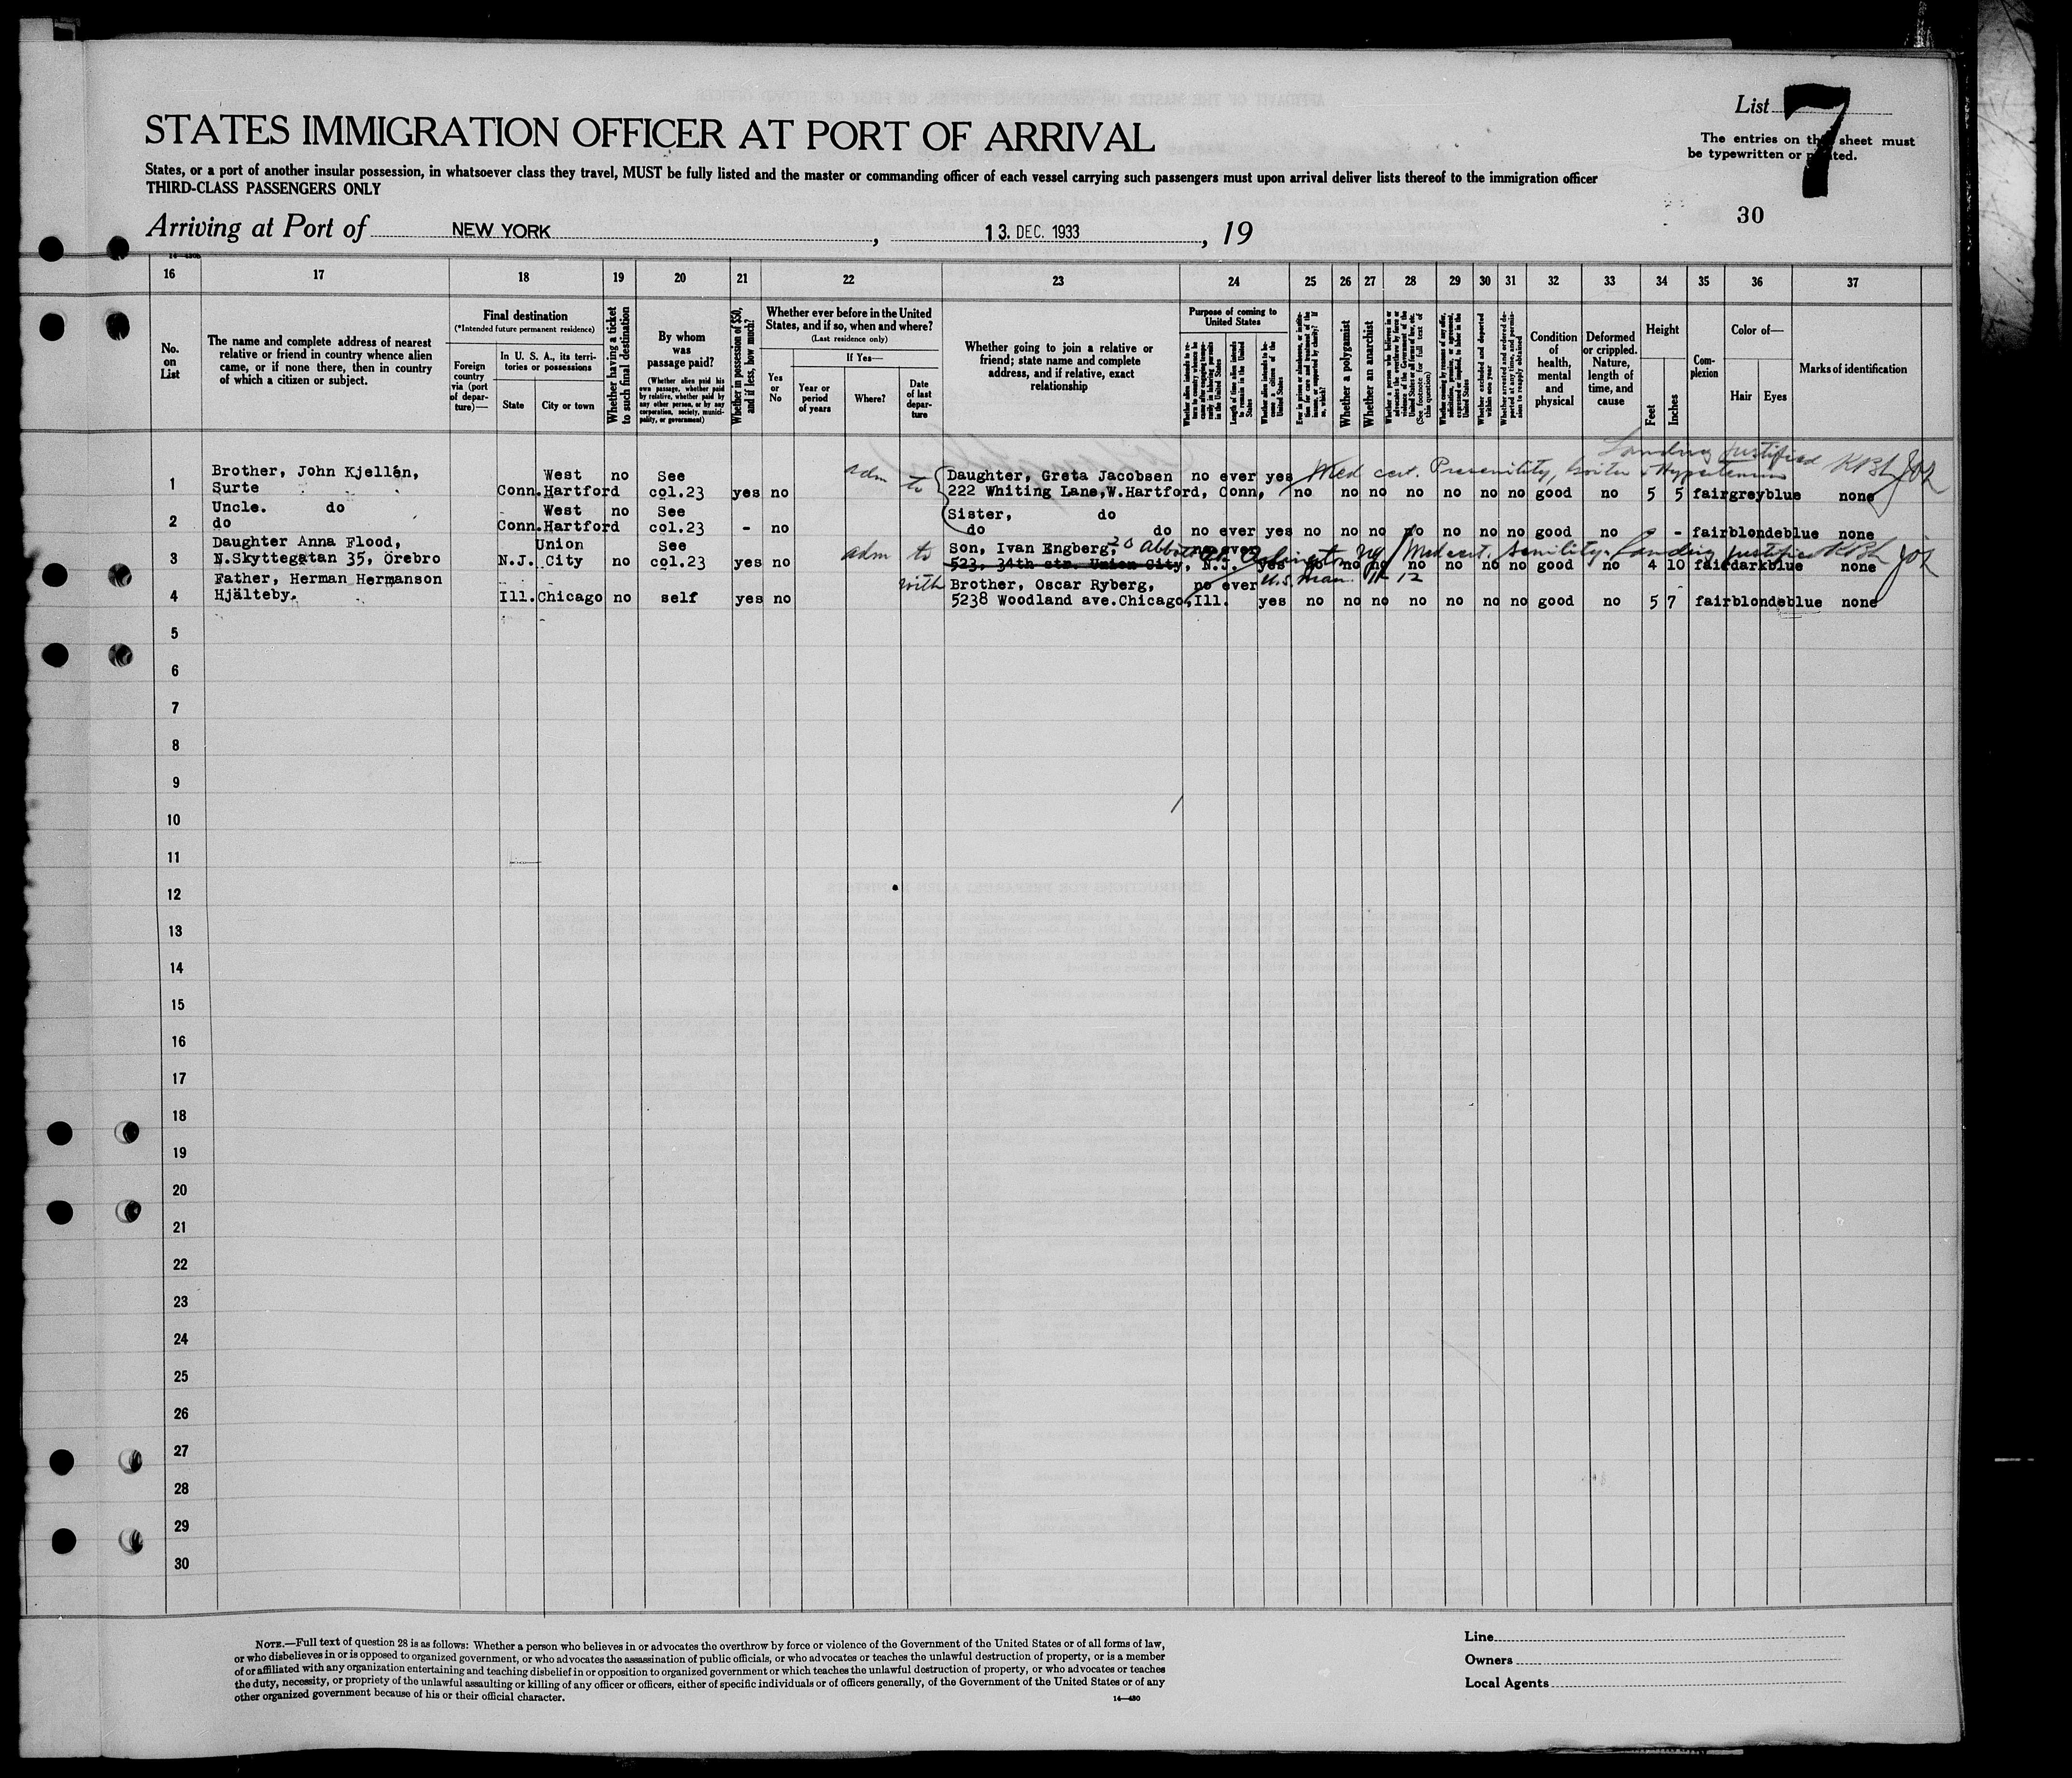 List 7
STATES IMMIGRATION OFFICER AT PORT OF ARRIVAL
The entries on this sheet must
be typewritten or printed.
States, or a port of another insular possession, in whatsoever class they travel, MUST be fully listed and the master or commanding officer of each vessel carrying such passengers must upon arrival deliver lists thereof to the immigration officer
THIRD-CLASS PASSENGERS ONLY
30
Arriving at Port of NEW YORK, 13. DEC. 1933, 19
14-430b
16 17 18 19 20 21 22 23 24 25 26 27 28 29 30 31 32 33 34 35 36 37
No. on List
The name and complete address of nearest relative or friend in country whence alien came, or if none there, then in country of which a citizen or subject.
Final destination
(*Intended future permanent residence)
Foreign country via (port of departure)—
In U. S. A., its territories or possessions
State
City or town
Whether having a ticket to such final destination
By whom was passage paid?
(Whether alien paid his own passage, whether paid by relative, whether paid by any other person, or by any corporation, society, municipality, or government)
Whether in possession of $50, and if less, how much?
Whether ever before in the United States, and if so, when and where?
(Last residence only)
Yes or No
If Yes—
Year or period of years
Where?
Date of last departure
Whether going to join a relative or friend; state name and complete address, and if relative, exact relationship
Purpose of coming to United States
Whether alien intends to return to country whence he came after engaging temporarily in laboring pursuits in the United States
Length of time alien intends to remain in the United States
Whether alien intends to become a citizen of the United States
Ever in prison or almshouse, or institution for care and treatment of the insane, or supported by charity? If so, which?
Whether a polygamist
Whether an anarchist
Whether a person who believes in or advocates the overthrow by force or violence of the Government of the United States or all forms of law, etc. (See footnote for full text of this question)
Whether coming by reason of any offer, solicitation, promise, or agreement, expressed or implied, to labor in the United States
Whether excluded and deported within one year
Whether arrested and ordered deported at any time, and permission to reapply obtained
Condition of health, mental and physical
Deformed or crippled. Nature, length of time, and cause
Height
Feet
Inches
Complexion
Color of—
Hair
Eyes
Marks of identification
Landing justified
Brother, John Kjellén, West no See adm to Daughter, Greta Jacobsen no ever yes Med cert. Presenility, Goiter & Hypertension KBH
1 Surte Conn. Hartford col.23 yes no 222 Whiting Lane, W.Hartford, Conn, no no no no no no no good no 5 5 fair grey blue none
Uncle. do West no See Sister, do
2 do Conn. Hartford col.23 - no do do no ever yes no no no no no no no good no - - fair blonde blue none
Daughter Anna Flood, Union See adm to Son, Ivan Engberg, 20 no ever Arlington NJ Med cert. Senility. Landing justified KBH
3 N.Skyttegatan 35, Örebro N.J. City no col.23 yes no 523, 34th str. Union City, N.J. yes no no no no no no no good no 4 10 fair dark blue none
Father, Herman Hermanson with Brother, Oscar Ryberg, no ever
4 Hjälteby. Ill. Chicago no self yes no 5238 Woodland ave.Chicago, Ill. yes no no no no no no no good no 5 7 fair blonde blue none
5
6
7
8
9
10
11
12
13
14
15
16
17
18
19
20
21
22
23
24
25
26
27
28
29
30
NOTE.—Full text of question 28 is as follows: Whether a person who believes in or advocates the overthrow by force or violence of the Government of the United States or of all forms of law,
or who disbelieves in or is opposed to organized government, or who advocates the assassination of public officials, or who advocates or teaches the unlawful destruction of property, or is a member
of or affiliated with any organization entertaining and teaching disbelief in or opposition to organized government or which teaches the unlawful destruction of property, or who advocates or teaches
the duty, necessity, or propriety of the unlawful assaulting or killing of any officer or officers, either of specific individuals or of officers generally, of the Government of the United States or of any
other organized government because of his or their official character.
14—430
Line
Owners
Local Agents